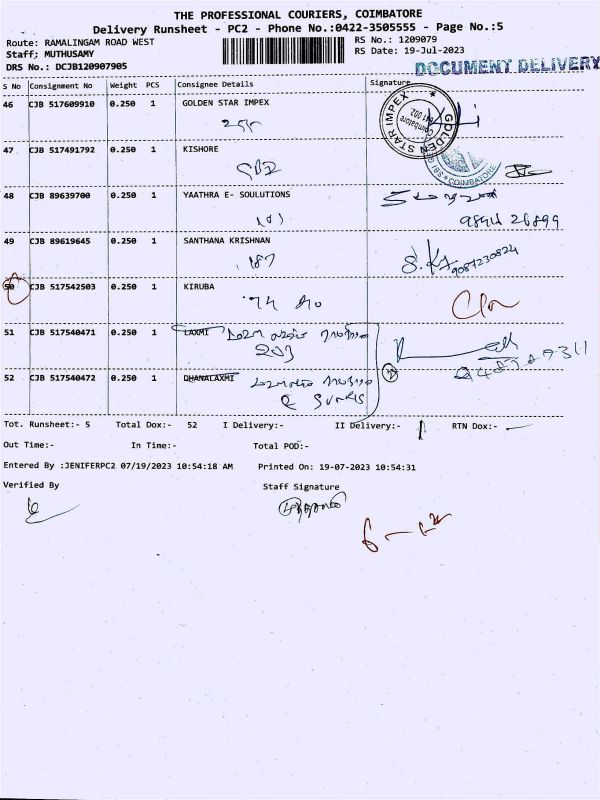 THE PROFESSIONAL COURIERS, COIMBATORE
Delivery Runsheet - PC2 - Phone No.:0422-3505555 - Page No.:5
Route: RAMALINGAM ROAD WEST
RS No.: 1209079
Staff; MUTHUSAMY
RS Date: 19-Jul-2023
DRS No.: DCJB120907905
DOCUMENT DELIVERY
S No Consignment No Weight PCS Consignee Details Signature
46 CJB 517609910 0.250 1 GOLDEN STAR IMPEX
GOLDEN STAR IMPEX
Coimbatore
47 CJB 517491792 0.250 1 KISHORE
COIMBATORE
48 CJB 89639700 0.250 1 YAATHRA E- SOULUTIONS
101
49 CJB 89619645 0.250 1 SANTHANA KRISHNAN
187
9087230824
50 CJB 517542503 0.250 1 KIRUBA
74
51 CJB 517540471 0.250 1 LAXMI
203
52 CJB 517540472 0.250 1 DHANALAXMI
Tot. Runsheet:- 5 Total Dox:- 52 I Delivery:- II Delivery:- RTN Dox:-
Out Time:- In Time:- Total POD:-
Entered By :JENIFERPC2 07/19/2023 10:54:18 AM Printed On: 19-07-2023 10:54:31
Verified By Staff Signature